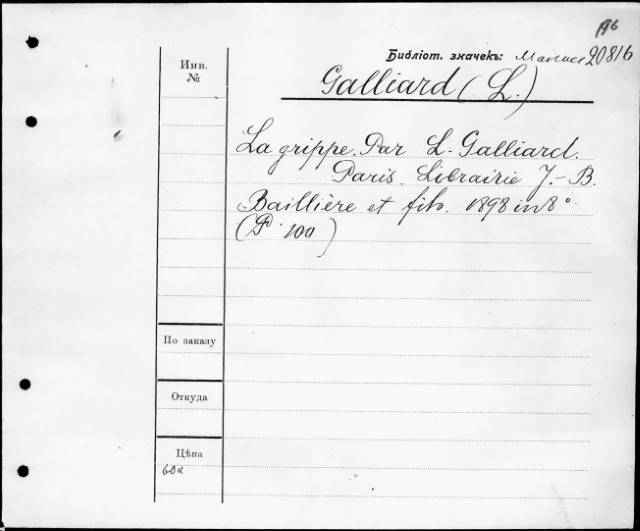 Библіот. значекъ: 20816
Инв.
№
Galliard (L.)
La grippe. Par L. Galliard.
Paris. Librairie J.-B.
Baillière et fils. 1898 in 8°
(P 100)
По заказу
Откуда
Цѣна
60к